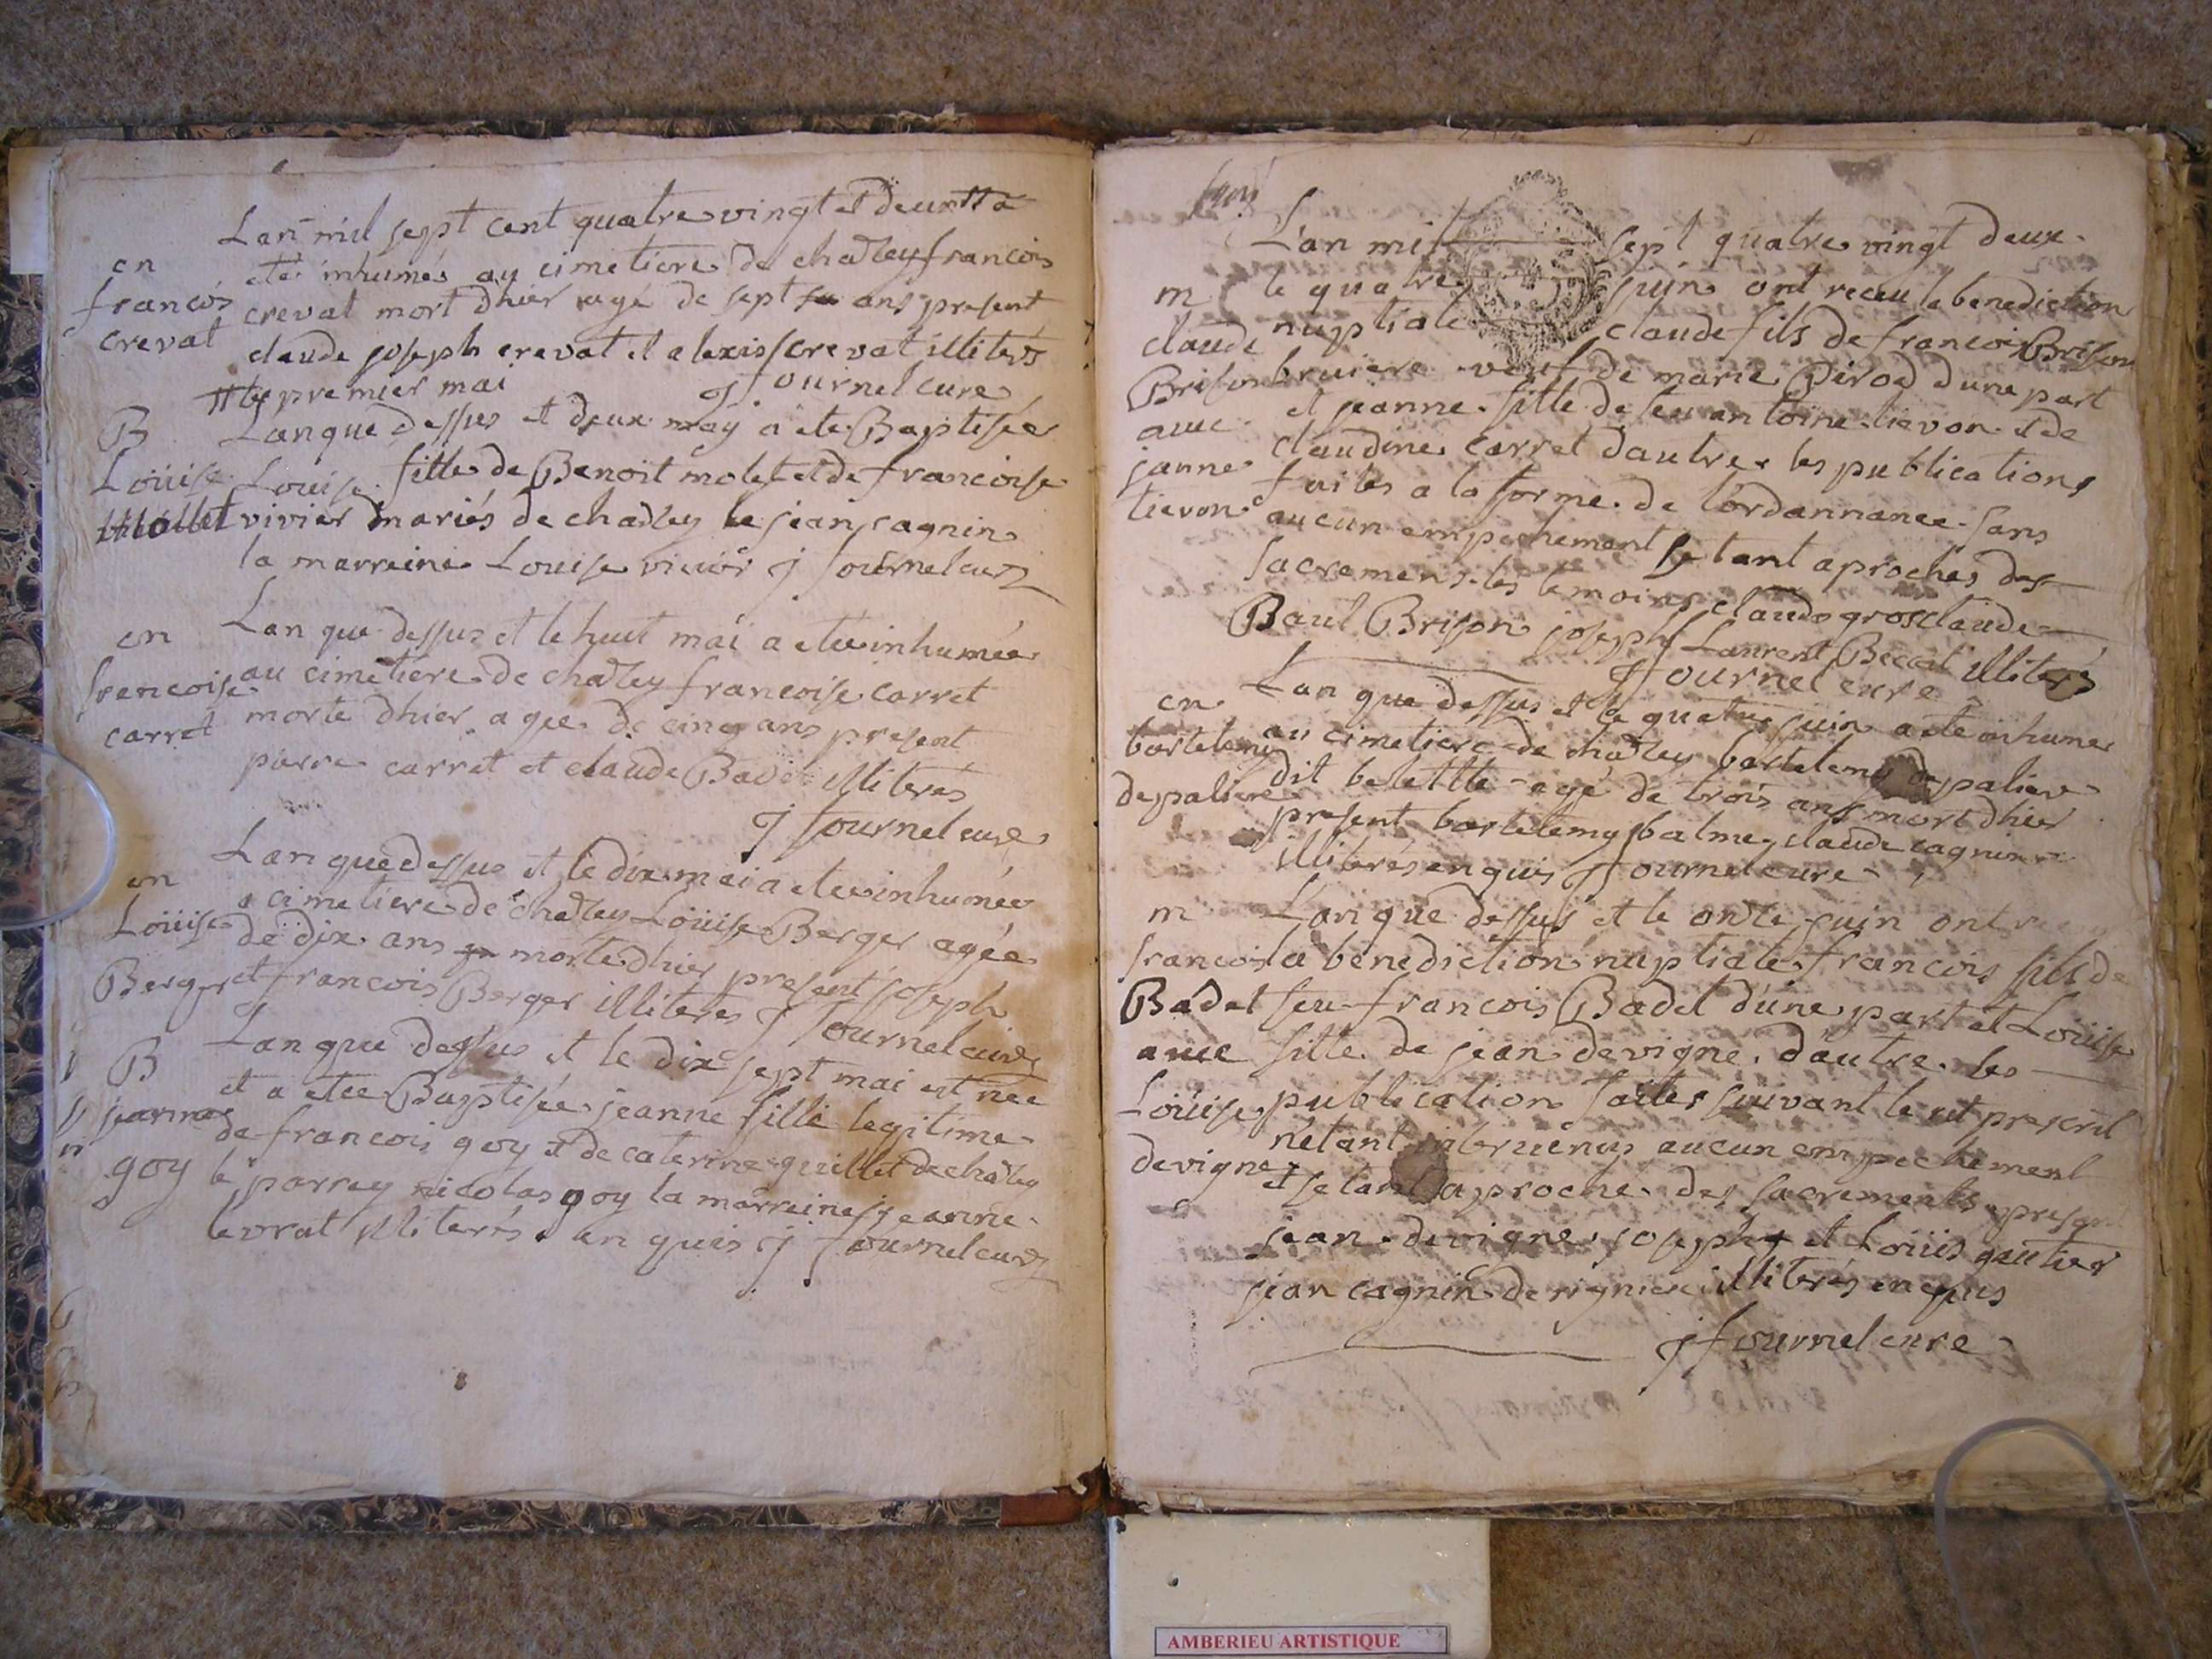 Lan mil sept cent quatre vingt et deux # a
en
eté inhumés au cimetiere de chaley francois
francois
crevat mort dhier agé de sept ans present
crevat
claude joseph crevat et alexis crevat illiterés
# le premier mai J fournel curé
B
Lan que dessus et deux may a ete Baptisée
Loüise
Louise fille de Benoit molet et de francoise
Mollet
vivier mariés de chaley le jean cagnin
la marreine Louise vivier J fournel curé
en
Lan que dessus et le huit mai a etée inhumée
francoise
au cimetiere de chaley francoise carret
carret
morte dhier agée de cinq ans present
pierre carret et claude Badet illiterés
J fournel curé
en
Lan que dessus et le dix mai a etee inhumée
Loüise
a cimetiere de chaley Loüise Berger agée
Berger
de dix ans morte dhier present joseph
et francois Berger illiterés J fournel curé
B
Lan que dessus et le dix sept mai est née
jeanne
et a etee Baptisée jeanne fille legitime
goy
de francois goy et de caterine quillet de chaley
le parrey nicolas goy la marreine jeanne
levrat illiterés enquis J fournel curé
L'an mil sept quatre vingt deux
m
le quatre juin ont receu la benediction
claude
nuptiale claude fils de francois Brison
Brison
bruiere veuf de marie Pirod dune part
avec
et jeanne fille de feu antoine tievon et de
janne
claudine carret dautre les publications
tievon
faites a la forme de l'ordannance sans
aucun empechement se tant aproches des
sacremens les temoins claude grosclaude
Baul Brison joseph Laurent Beccat illiterés
J fournel cure
en
Lan que dessus et le quatre juin a ete inhumer
bartelemy
au cimetiere de chaley bartelemy depaliere
depaliere
dit belette agé de trois ans mort dhier
present bartelemy balme claude cagnin
illiterés enquis J fournel cure
m
Lan que dessus et le onze juin ont
francois
la benediction nuptiale francois fils de
Badet
feu francois Badet d'une part et Loüise
avec
fille de jean devigne dautre les
Loüise
publication faites suivant le rit prescrit
devigne
n'etant intervenus aucun empechement
et se tant aproche des sacrements
jean devigne joseph et Loüis gautier
jean cagnin de rigniere illiterés enquis
J fournel cure
AMBERIEU ARTISTIQUE